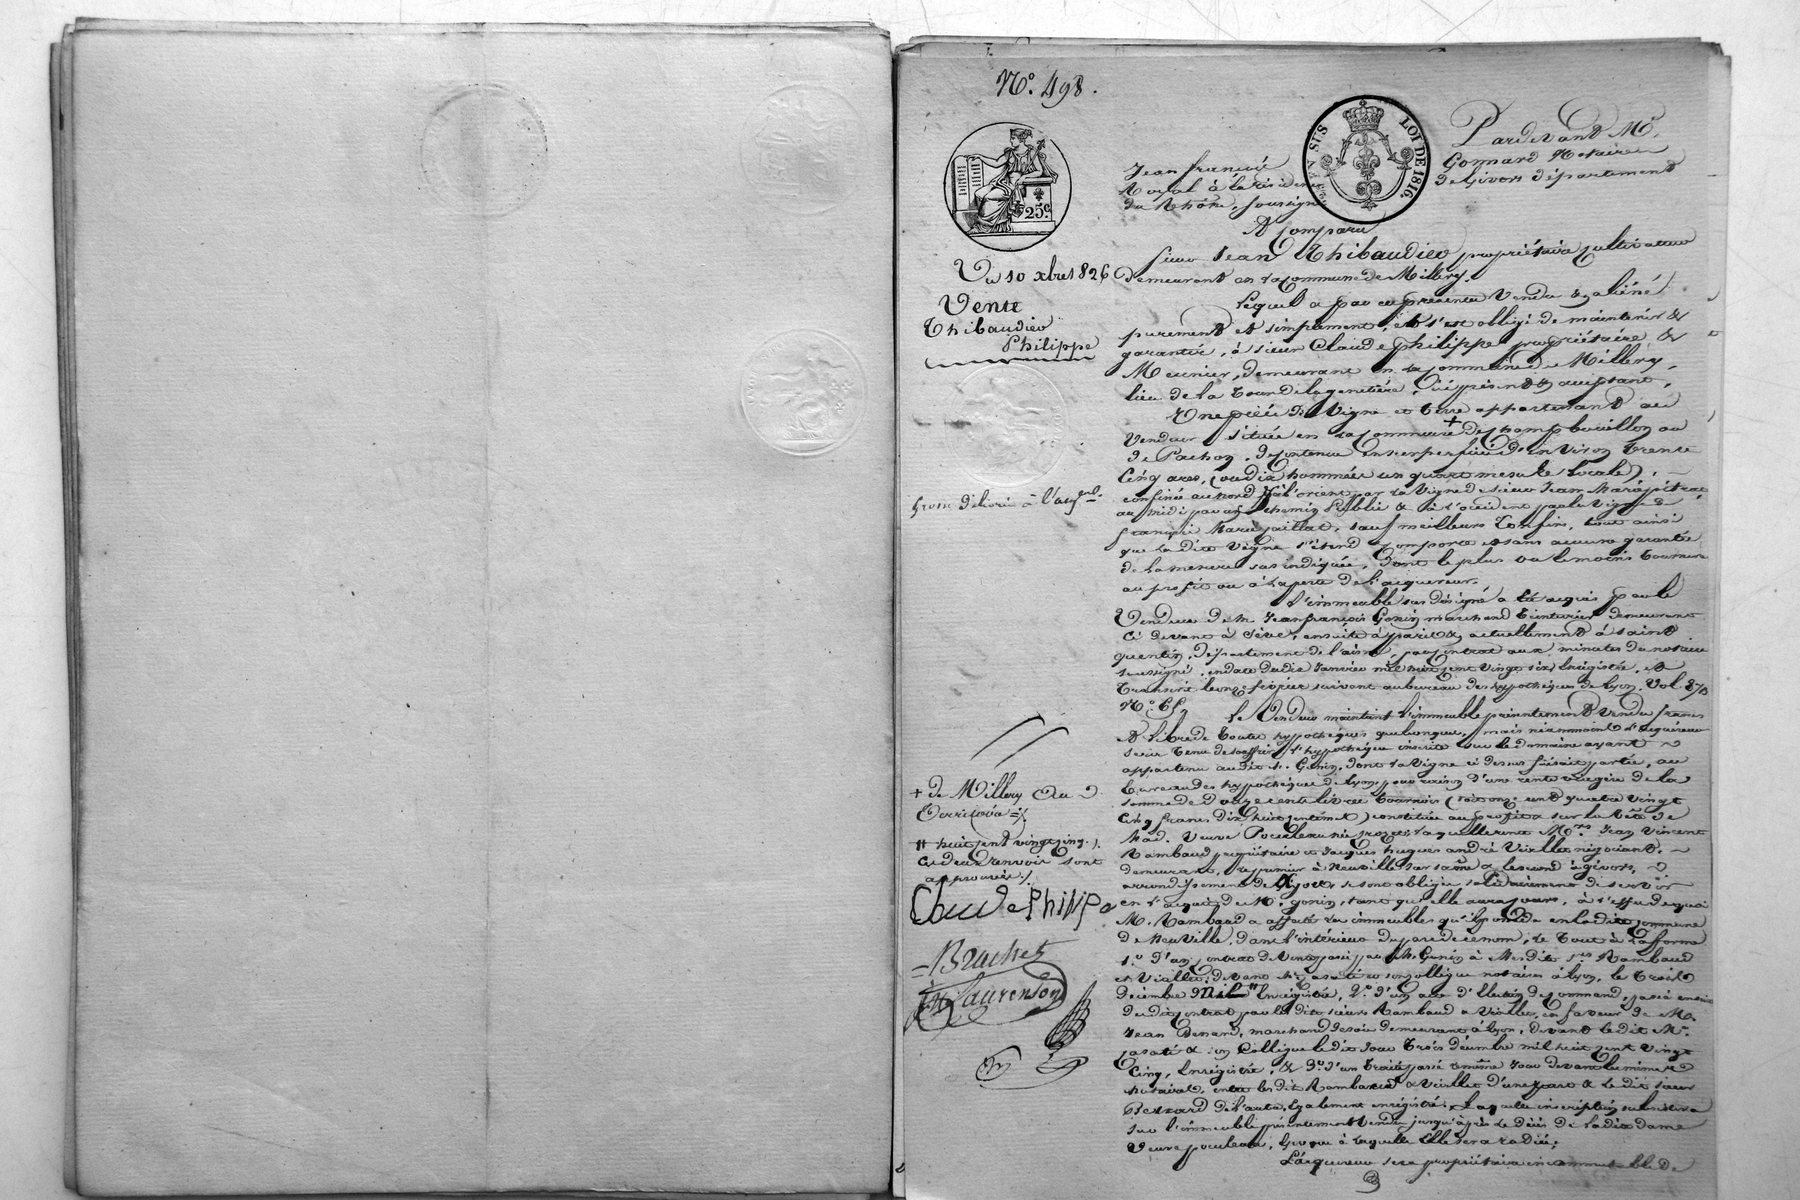 N.º 498.
25 c.
TIMB. SUS
LOI DE 1816.
Pardevant M.e
Jean françois Gonnard Notaire
Royal à la résidence de Givors département
du Rhône, soussigné
A Comparu
Sieur Jean Thibaudier propriétaire cultivateur
demeurant en la Commune de Millery.
Lequel a par ces présentes Vendu & aliéné
purement et simplement, et s'est obligé de maintenir &
garantir, à sieur Claude philippe propriétaire, &
Meunier, demeurant en la Commune de Millery,
lieu de la Tour de la , ici présent & acceptant,
Une pièce de Vigne et terre appartenant au
Vendeur située en la Commune + de champ bouillon ou
de Pachon, de contenue en superficie d'environ trente
Cinq ares, (ou dix hommées un quart mesure locale),
confinée au nord & à l'orient par la Vigne de sieur Jean Marie
au midi par un Chemin Public & à l'occident par la Vigne de
françois Marie paillat, sauf meilleurs Confins, tout ainsi
que la dite Vigne s'étend & comporte et sans aucune garantie
de la mesure sus indiquée, dont le plus ou le moins tournera
au profit ou à la perte de l'acquéreur.
L'immeuble sus désigné a été acquis par le
Vendeur de M. Jean françois Gonin marchand teinturier demeurant
Ci devant à , ensuite à paris & actuellement à saint
quentin, département de l'aisne, par contrat aux minutes du notaire
soussigné, en date du dix Janvier mil huit cent vingt six, Enregistré, et
transcrit le onze février suivant au bureau des hypothèques de Lyon, Vol. 870
N.º 65,
Le Vendeur maintient l'immeuble présentement Vendu francs
& libre de toutes hypothèques quelconques, mais néanmoins l'acquéreur
sera tenu de souffrir l'hypothèque inscrite sur le domaine ayant
appartenu au dit s. Gonin, dont la Vigne ci dessus faisait partie, au
bureau des hypothèques de Lyon, pour raison d'une rente viagère de la
somme de douze cents livres tournois (soit onze cent quatre vingt
Cinq francs dix huit centimes) constituée au profit & sur la tête de
Mad. Veuve née à laquelle rente M.rs Jean Vincent
Rambaud, propriétaire et Jacques hugues andré Viallet négociant,
demeurant, le premier à Neuville sur saône & le second à givors,
arrondissement de Lyon, se sont obligés solidairement de servir
en l'acquit de M. gonin, tant qu'elle aura cours, à l'effet de quoi
M. Rambaud a affecté les immeubles qu'il possède en la dite Commune
de Neuville, dans l'intérieur du parc de ce nom, le tout à la forme
1.º d'un Contrat de Vente passé par M. Gonin à Mesdits s.rs Rambaud
et Viallet, devant M.e Casati & son Collègue notaires à Lyon, le trois
décembre mil " Enregistré, 2.º d'un acte d'Election de Command, passé ensuite
du dit Contrat par les dits sieurs Rambaud & Viallet, en faveur de M.
Jean , marchand de soie demeurant à Lyon, devant le dit M.e
Casati & son Collègue le dit Jour trois décembre mil huit cent vingt
Cinq, Enregistré, & 3.º d'un traité passé le même Jour devant les mêmes
notaires, entre les dits Rambaud & Viallet d'une part & le dit sieur
de l'autre, Egalement enregistré; Laquelle inscription subsistera
sur l'immeuble présentement Vendu jusqu'après le décès de la dite dame
Veuve , Epoque à laquelle Elle sera radiée;
L'acquéreur sera propriétaire incommutable de
Du 10 xbre 1826
Vente
Thibaudier
Philippe
Grosse délivrée à l'acq.
+ de Millery Au
Territoire =/.
" huit cent vingt cinq ./.
Ces deux renvois sont
approuvés ./.
Claude Philippe
Brachet
Laurenson